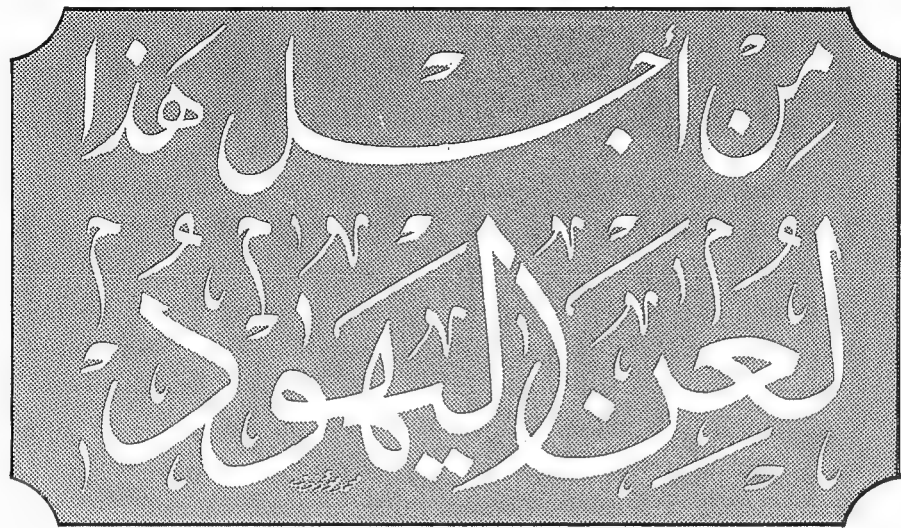 مِنْ أجْل هَذا
لُعِنَ اليهود